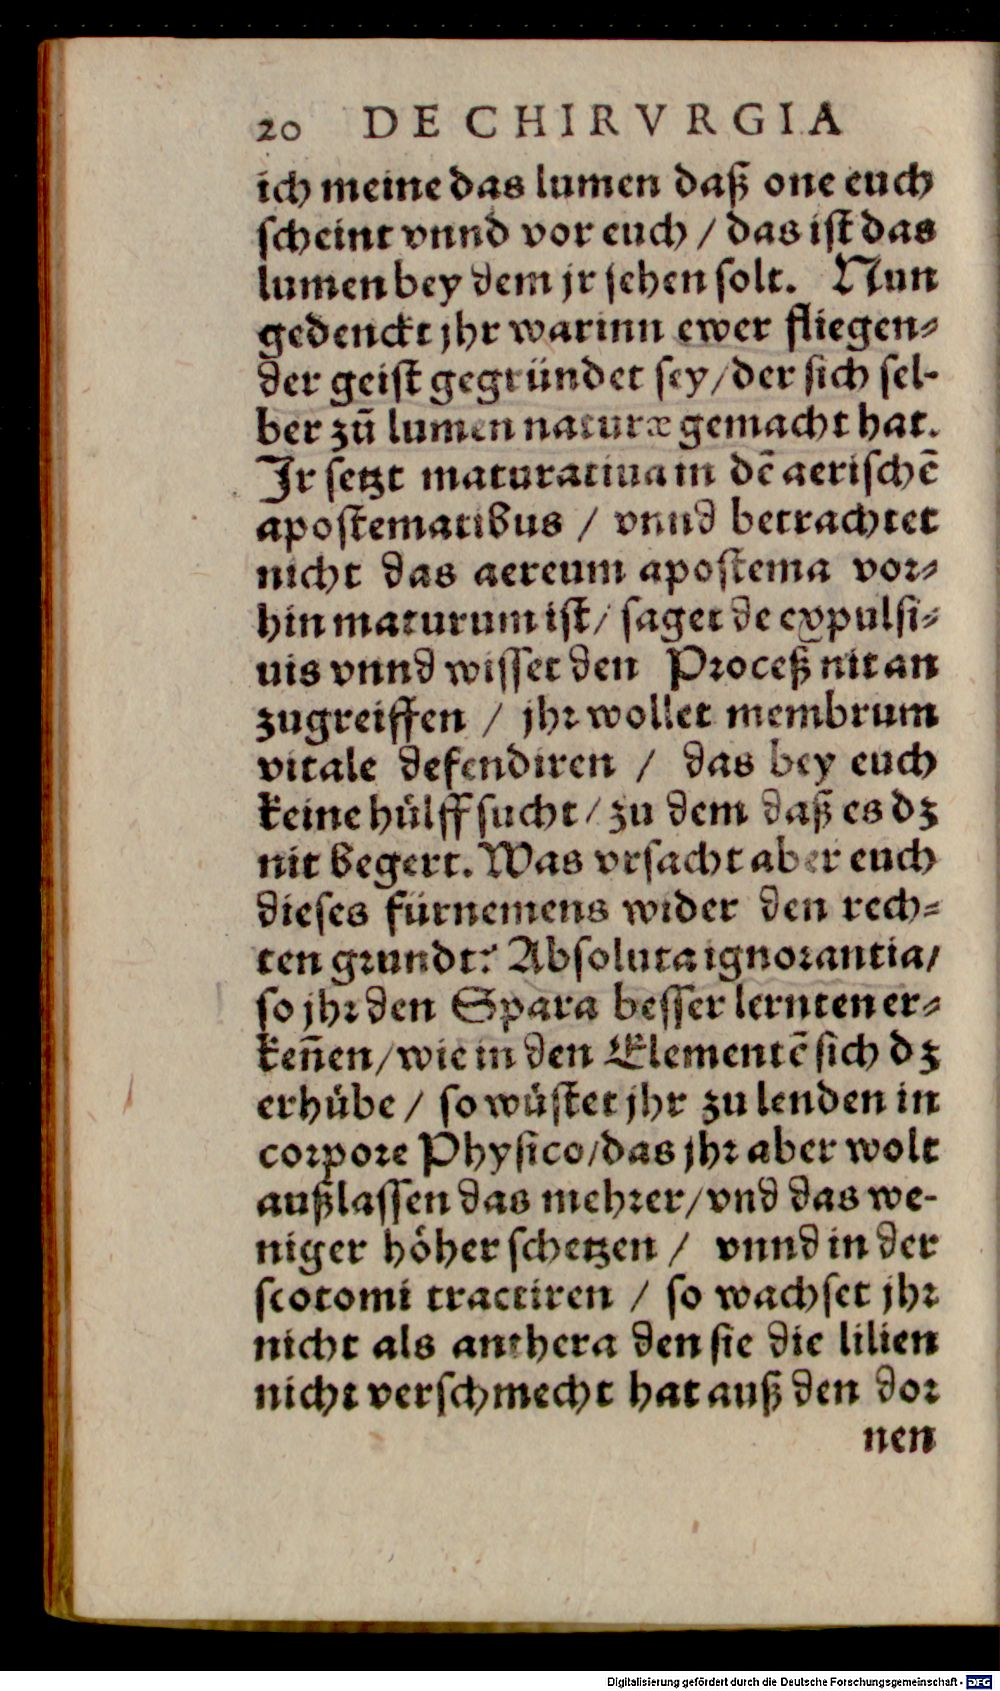 20 DE CHIRVRGIA
ich meine das lumen daß one euch
scheint vnnd vor euch / das ist das
lumen bey dem jr sehen solt. Nun
gedenckt jhr warinn ewer fliegen⸗
der geist gegründet sey/der sich sel-
ber zũ lumen naturæ gemacht hat.
Jr setzt maturatiua in dẽ aerischẽ
apostematibus / vnnd betrachtet
nicht das aereum apostema vor⸗
hin maturum ist/ saget de expulsi⸗
uis vnnd wisset den Proceß nit an
zugreiffen / jhr wollet membrum
vitale defendiren / das bey euch
keine hülff sucht/ zu dem daß es dz
nit begert. Was vrsacht aber euch
dieses fürnemens wider den rech⸗
ten grundt? Absoluta ignorantia/
so jhr den Spara besser lernten er⸗
keñen/wie in den Elementẽ sich dz
erhübe / so wüstet jhr zu lenden in
corpore Physico/das jhr aber wolt
außlassen das mehrer/vnd das we-
niger höher schetzen / vnnd in der
scotomi tractiren / so wachset jhr
nicht als anthera den sie die lilien
nicht verschmecht hat auß den dor
nen
Digitalisierung gefördert durch die Deutsche Forschungsgemeinschaft - DFG